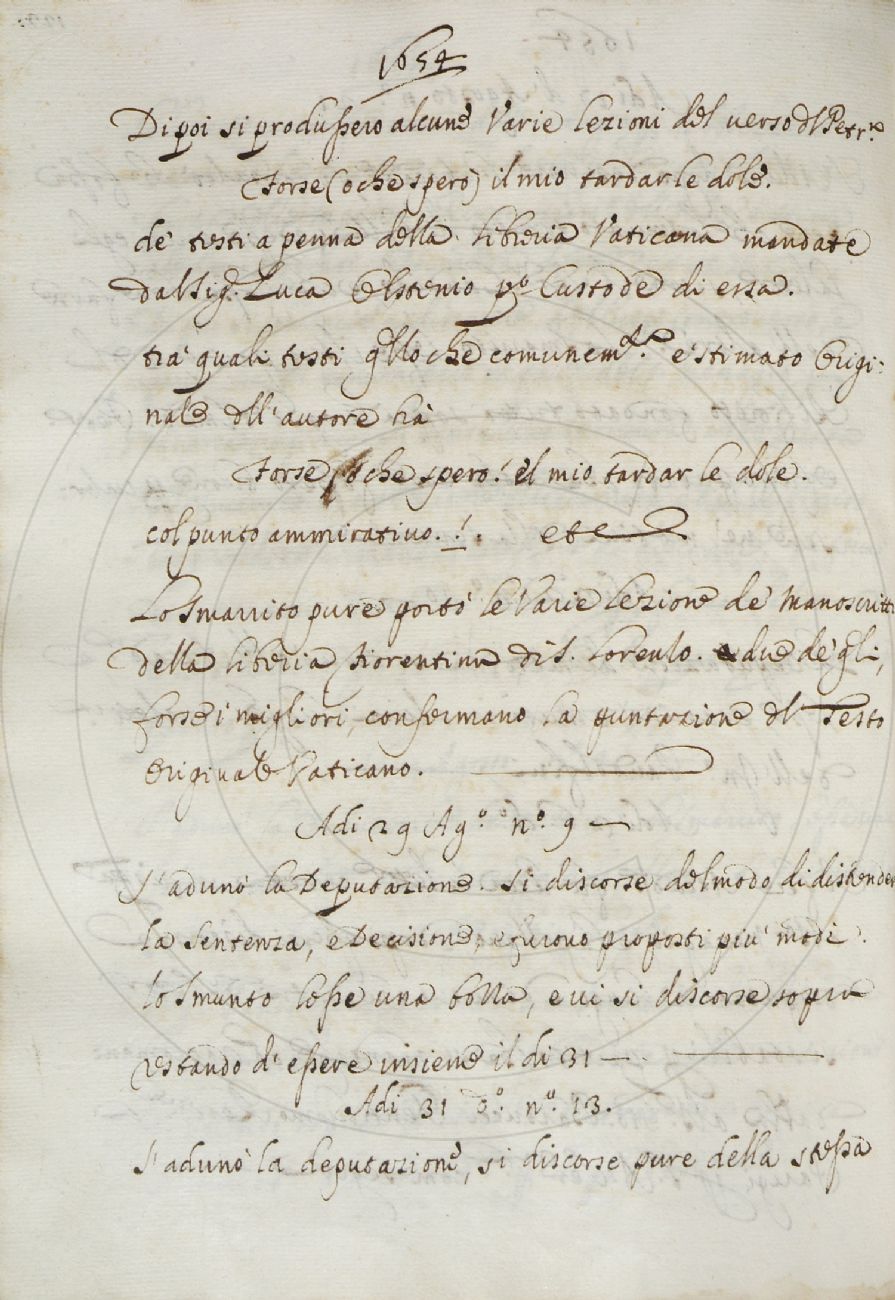 1654
Dipoi si produssero alcune Varie lezioni del verso dl Petr.ca
Forse (o che spero) il mio tardar le dole.
de' testi a penna della libreria Vaticana mandate
dal Sig.r Luca Olstenio p.o Custode di essa.
trà quali testi q̃llo che comunem.te è stimato Origi:
nale dll'autore hà
Forse, o che spero! el mio tardar le dole.
col punto ammirativo. !. etc
Lo Smarrito pure portò le Varie lezione de Manoscritti
della libreria Fiorentina di S. Lorenzo. e due de' q̃li,
forse i migliori, confermano la puntazione dl Testo
Originale Vaticano.
Adi 29 Ag.o n.o 9
S'adunò la Deputazione. si discorse del modo di distender
la Sentenza, e Decisione, e furono proposti più modi.
lo Smunto lesse una bozza, e vi si discorse sopra
restando d'essere insieme il di 31
Adi 31 d.o n.o 13.
S'adunò la deputazione, si discorse pure della stessa